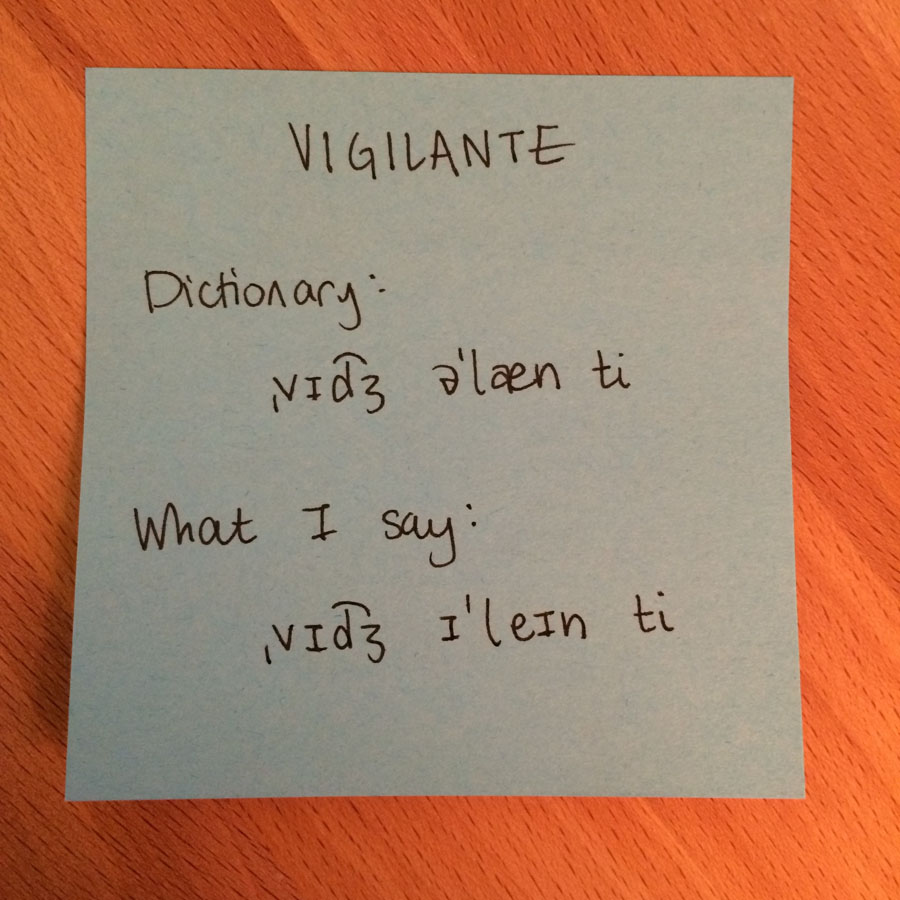 VIGILANTE
Dictionary:
ˌvɪd͡ʒ əˈlæn ti
What I say:
ˌvɪd͡ʒ ɪˈleɪn ti